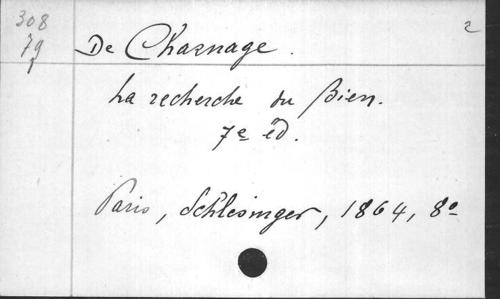 308
79
1
2
De Charnage.
La recherche du Bien.
7e éd.
Paris, Schlesinger, 1864, 8o